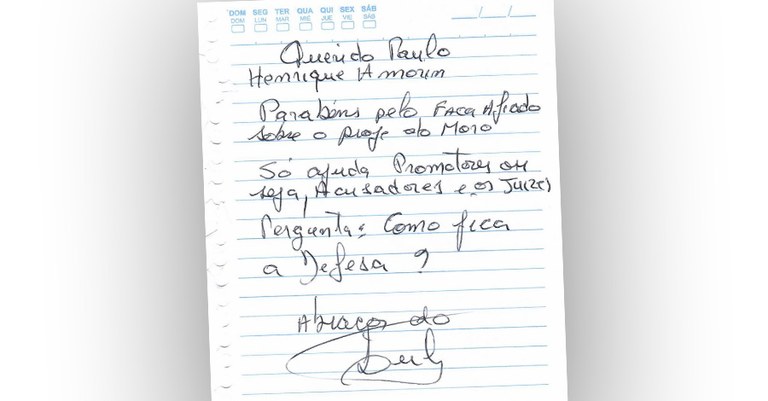 DOM SEG TER QUA QUI SEX SÁB
DOM LUN MAR MIÉ JUE VIE SÁB
__/__/__
Querido Paulo
Henrique Amorim
Parabéns pelo Faca Afiada
sobre o proje do Moro
Só ajuda Promotores ou
seja, Acusadores e os Juízes
Pergunta: Como fica
a Defesa ?
Abraços do